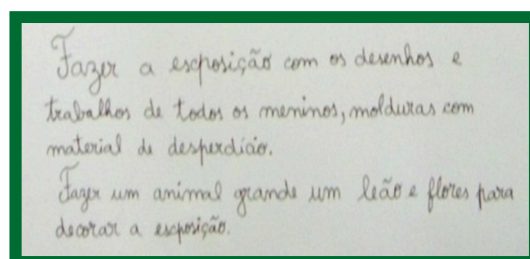 Fazer a escposição com os desenhos e
trabalhos de todos os meninos, molduras com
material de desperdício.
Fazer um animal grande um leão e flores para
decorar a escposição.